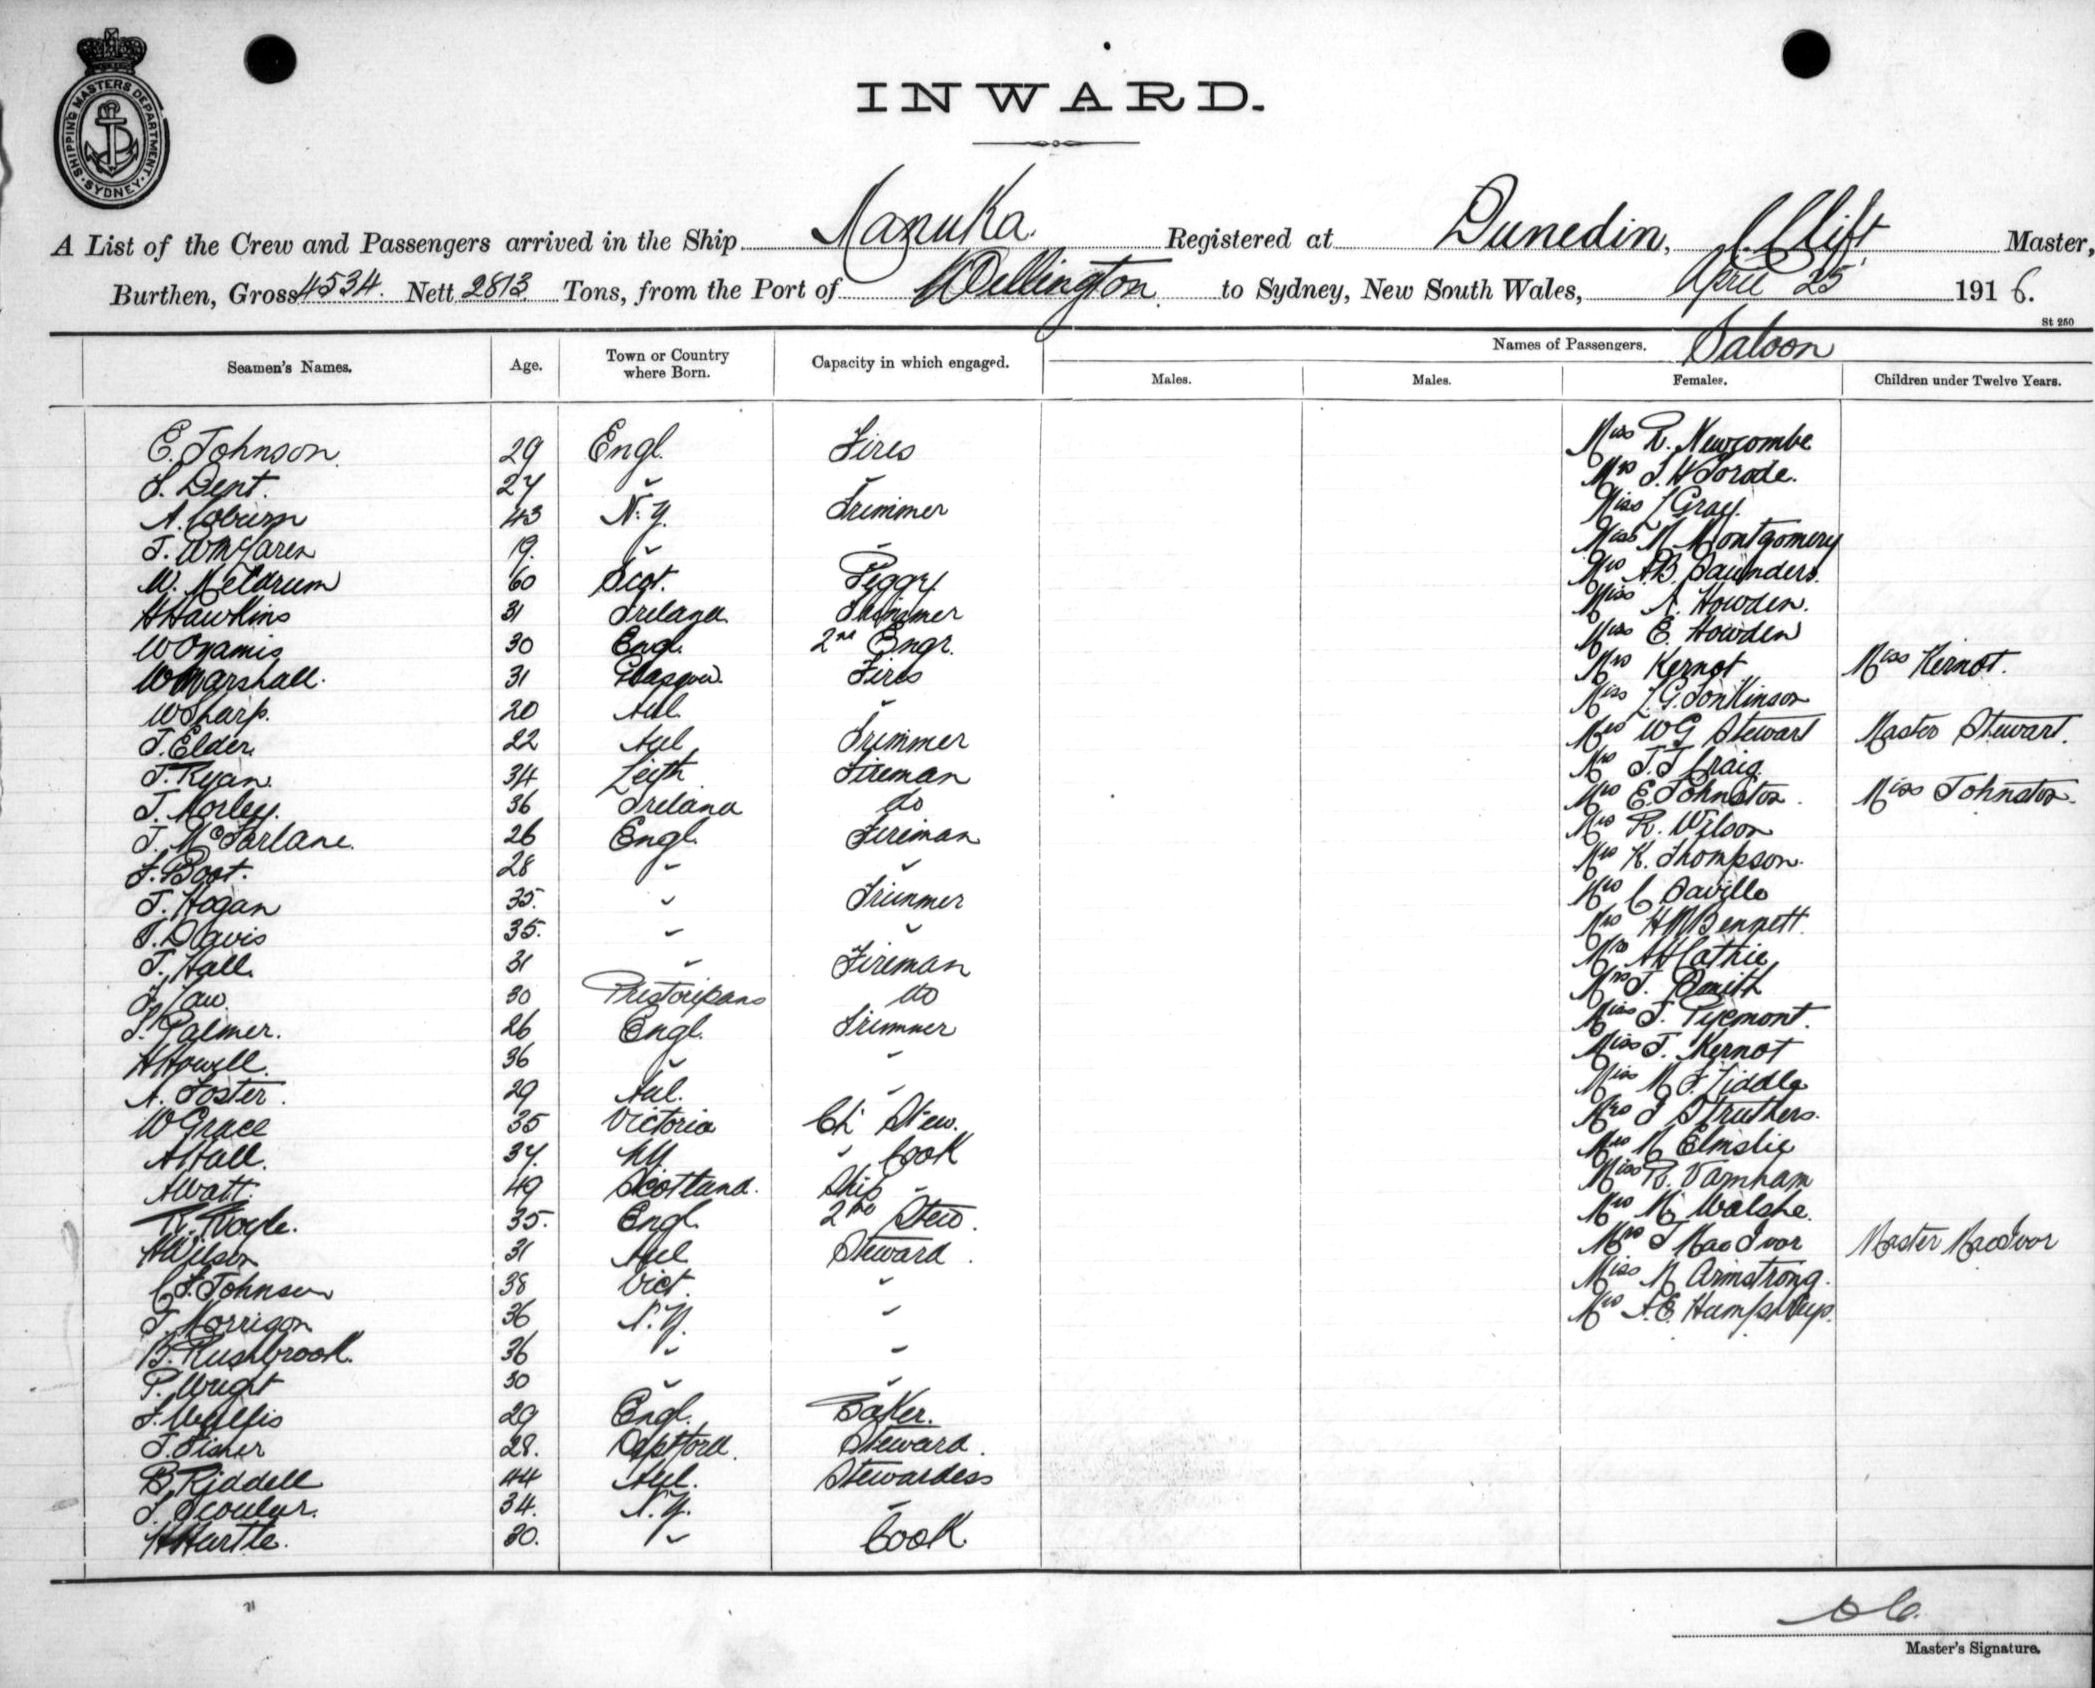 SHIPPING MASTERS DEPARTMENT. SYDNEY.
INWARD.
A List of the Crew and Passengers arrived in the Ship Manuka. Registered at Dunedin, C. Clift, Master,
Burthen, Gross 4534. Nett 2813 Tons, from the Port of Wellington. to Sydney, New South Wales, April 25 1916.
St 250
Seamen's Names. Age. Town or Country where Born. Capacity in which engaged. Names of Passengers. Saloon
Males. Males. Females. Children under Twelve Years.
E. Johnson. 29 Engl. Fires Miss R. Newcombe
S. Dent. 27 " " Mrs S. W Torode.
A. Coburn 43 N.Z. Trimmer Miss L Gray.
J. W McLaren 19. " " Miss M Montgomery
W. Meldrum 60 Scot. Peggy Mrs A B. Saunders.
H Hawkins 31 Ireland Trimmer Miss A. Howden.
W 30 Engl. 2nd Engr. Miss E. Howden
W Marshall. 31 Glasgow. Fires Mrs Kernot Miss Kernot.
W Sharp. 20 Aul. " Miss L. G. Tonkinson
J. Elder. 22 Aul Trimmer Mrs W G Stewart Master Stewart.
J. Ryan. 34 Leith Fireman Mrs J. J Craig.
J. Morley. 36 Ireland do Mrs E. Johnston. Miss Johnston.
J. McFarlane. 26 Engl. Fireman Mrs R. Wilson
F. Boot. 28 " " Mrs K. Thompson.
J. Hogan 35. " Trimmer Mrs C Saville
T. Davis 35. " " Mrs H M Bennett.
J. Hall. 31 " Fireman Mrs A H Cathie
J Law 30 Prestonpans do Mrs J. Smith
S. Palmer. 26 Engl. Trimmer Miss J. Pyemont.
H Howell. 36 " " Miss J. Kernot
A. Foster. 29 Aul. " Miss M. F. Fiddle
W Grace 35 Victoria Ch Stew. Mrs J Struthers.
A Hall. 37. NZ " Cook Mrs N Elmslie
A Watt. 49 Scotland. Ship " Miss R. Varnham
R. Royle. 35. Engl. 2nd Stew. Mrs M. Walshe.
H Wilson 31 Aul Steward. Mrs J MacIvor Master MacIvor
C F. Johnson 38 Vict. " Miss N Armstrong.
J. Morrison 36 N.Z. " Mrs A. E. Humphreys.
B. Rushbrook. 36 " "
P. Wright 30 " "
F. Wyllis 29 Engl. Baker.
J. Fisher 28. Deptford. Steward.
B. Riddell 44 Aul. Stewardess
J. Scoular. 34. N.Z. "
H Hartle. 30. " Cook
Master's Signature.